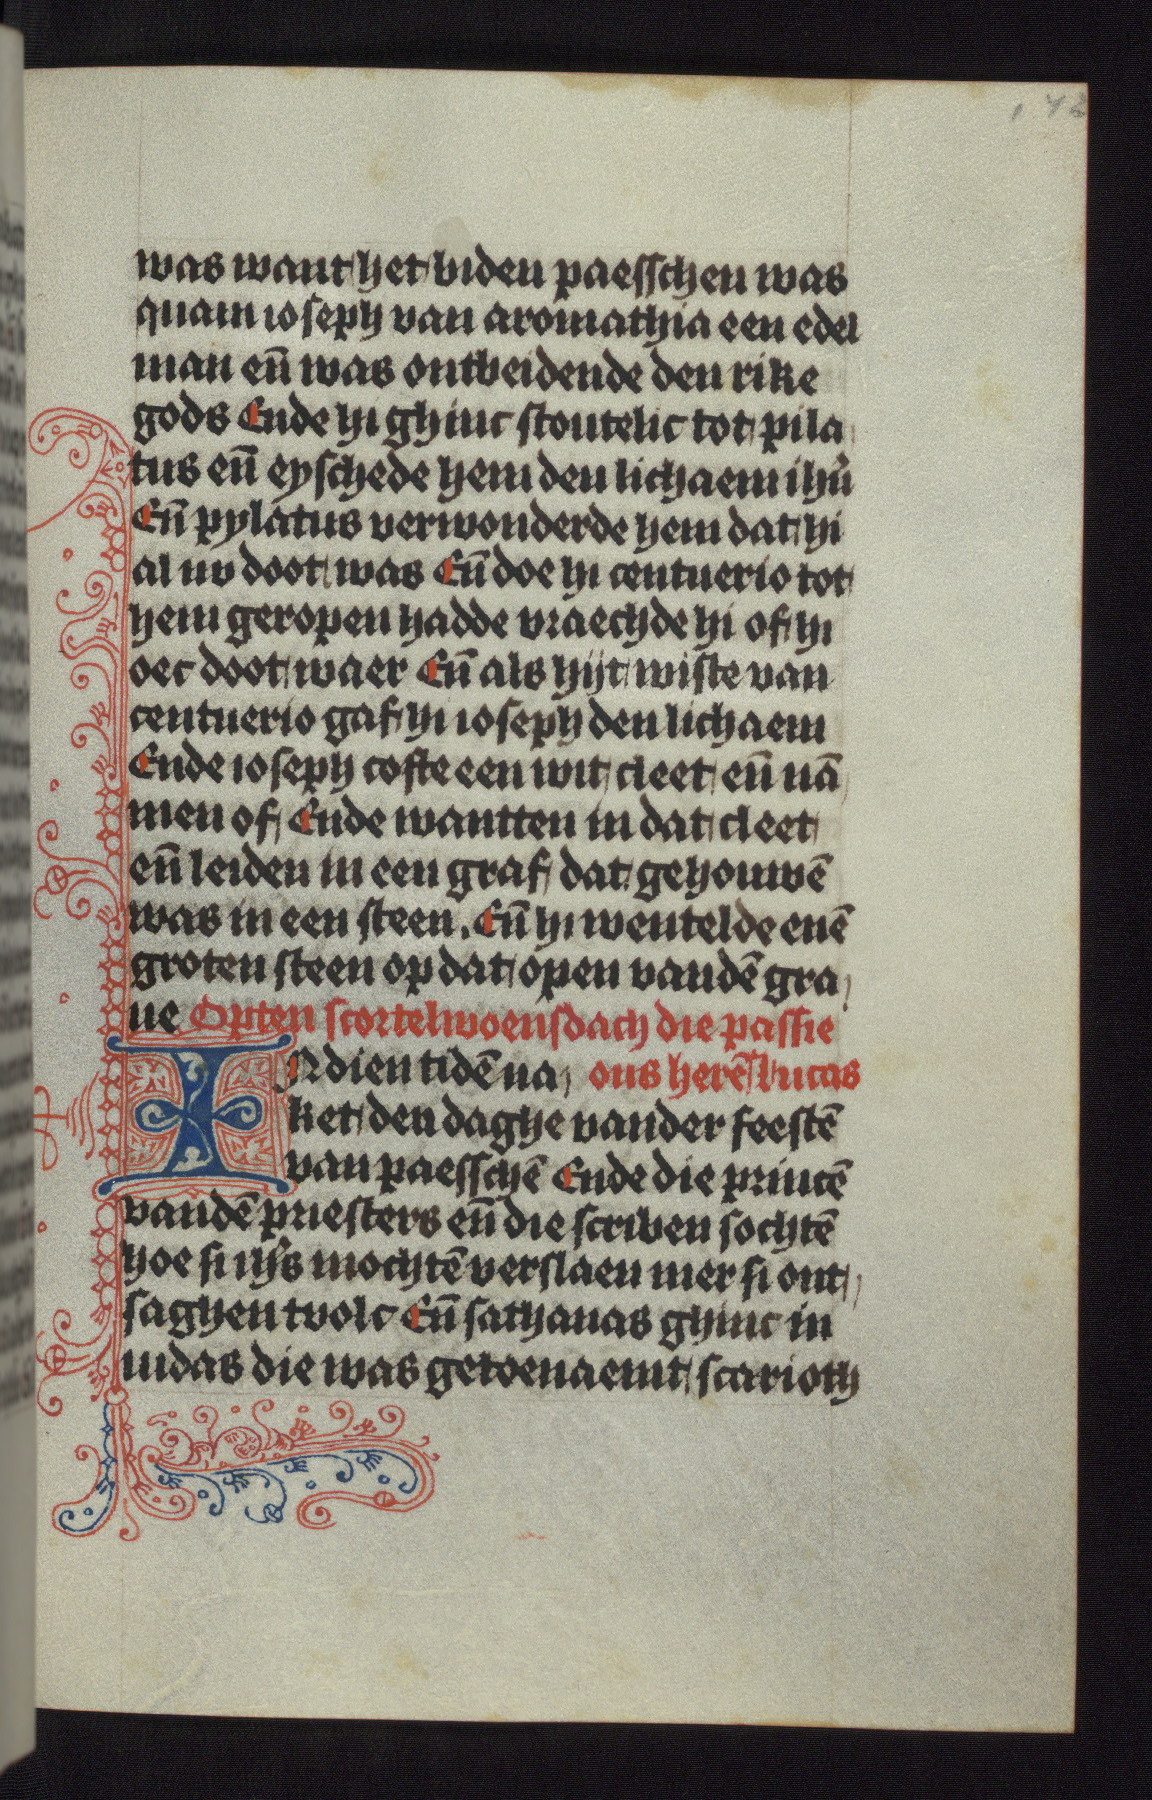 142
was want het biden paesschen was
quam ioseph van aromathia een edel
man eñ was ontbeidende den rike
gods Ende hi ghinc stoutelic tot pila
tus eñ eyschede hem den lichaem ihū
Eñ pylatus verwonderde hem dat hi
al nv doot was Eñ doe hi centuerio tot
hem geropen hadde vraechde hi of hi
oec doot waer Eñ als hijt wiste van
centuerio gaf hi ioseph den lichaem
Ende ioseph cofte een wit cleet eñ nā
men of Ende wantten in dat cleet
eñ leiden in een graf dat gehouwē
was in een steen. Eñ hi wentelde enē
groten steen op dat open vandē gra
ue Opten scortelwoensdach die passie
INdien tidē na ons herē lucas
ket den daghe vander feestē
van paesschē Ende die princē
vandē priesters eñ die scriben sochtē
hoe si ihs̄ mochtē verslaen mer si ont
saghen tvolc Eñ sathanas ghinc in
iudas die was getoenaemt scarioth